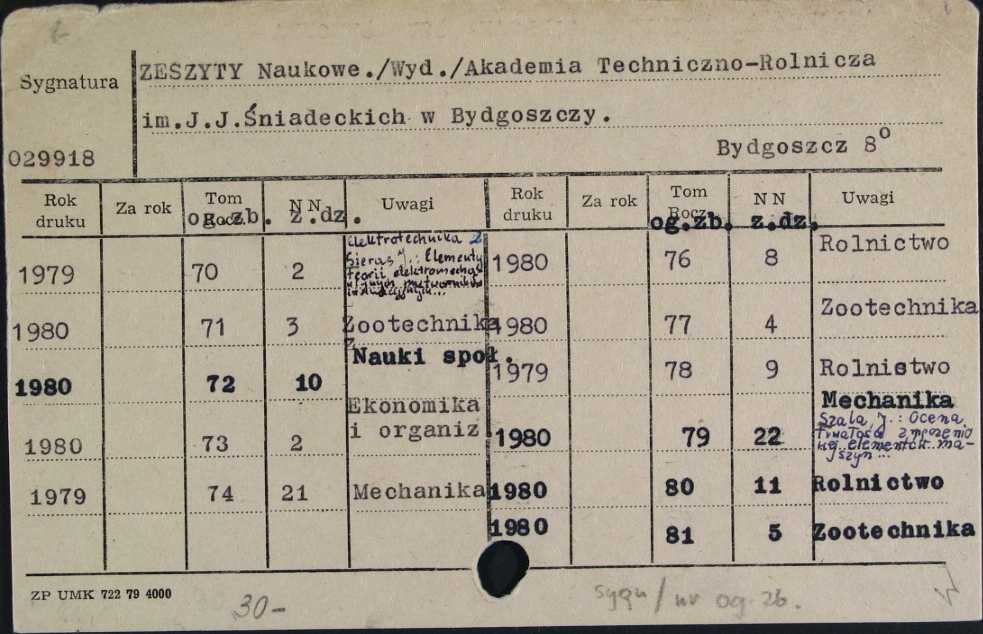 Sygnatura
ZESZYTY Naukowe./Wyd./Akademia Techniczno-Rolnicza
im.J.J.Śniadeckich w Bydgoszczy.
029918
Bydgoszcz 8°
Rok druku Za rok Tom Rocz. N N Uwagi Rok druku Za rok Tom Rocz. N N Uwagi
og.zb. z.dz. og.zb. z.dz.
1979 70 2 Elektrotechnika 2
Sieras J.: Elementy
teorii elektromecha
indukcyjnych...
1980 71 3 Zootechnika
1980 72 10 Nauki społ.
1980 73 2 Ekonomika
i organiz.
1979 74 21 Mechanika
1980 76 8 Rolnictwo
1980 77 4 Zootechnika
1979 78 9 Rolnistwo
1980 79 22 Mechanika
Szala, J.: Ocena
trwałości zmęczenio
wej elementów ma-
szyn...
1980 80 11 Rolnictwo
1980 81 5 Zootechnika
ZP UMK 722 79 4000
30-
sygn/nr og. zb.